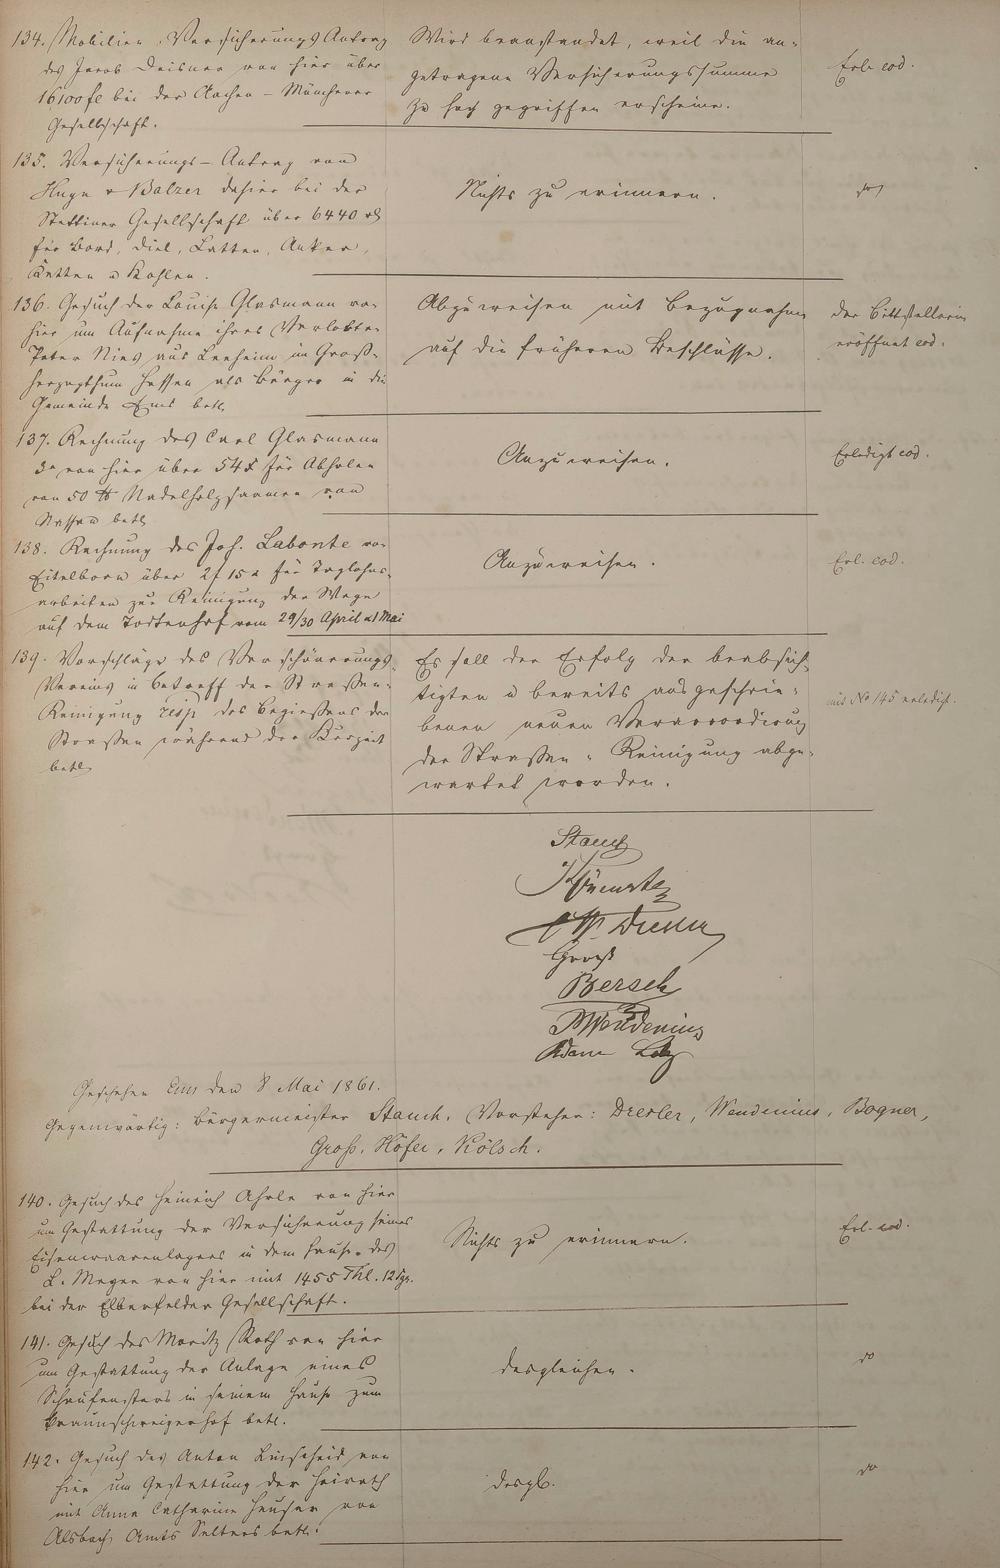 134. Mobilien-Versicherungs Antrag
des Jacob Deisner von hier über
16100 fl bei der Aachen-Münchener
Gesellschaft.
Wird beanstandet, weil die an-
getragene Versicherungssumme
zu hoch gegriffen erscheine.
Erl. eod.
135. Versicherungs-Antrag von
& Balzer dahier bei der
Stettiner Gesellschaft über 6440 rl
für Bord, Diel, Latten, Anker,
Ketten u Kohlen.
Nichts zu erinnern.
do
136. Gesuch der Louise Glasmann von
hier um Aufnahme ihres Verlobten
Peter Nies aus Leeheim im Groß-
herzogthum Hessen als Bürger in die
Gemeinde Ems betr.
Abzuweisen mit Bezugnahme
auf die früheren Beschlüsse.
der Bittstellerin
eröffnet eod.
137. Rechnung des Carl Glasmann
von hier über 54 x für Abholen
von 50 ℔ Nadelholzsaamen von
Nassau betr.
Anzuweisen.
Erledigt eod.
138. Rechnung des Joh. Labonte von
Eitelborn über 2 f 15 x für Taglohns-
arbeiten zur Reinigung der Wege
auf dem Todtenhof vom 29/30 April u 1 Mai
Anzuweisen.
Erl. eod.
139. Vorschläge des Verschönerungs-
Vereins in Betreff der Strassen-
Reinigung resp. des Begiessens der
Strassen während der Kurzeit
betr.
Es soll der Erfolg der beabsich-
tigten u bereits ausgeschrie-
benen neuen Verakkordirung
der Strassen-Reinigung abge-
wartet werden.
mit No 145 erledigt.
Stauch
Dresler
Gross
Bersch
Wendenius
Adam
Geschehen Ems den 8 Mai 1861.
Gegenwärtig: Bürgermeister Stauch, Vorsteher: Dresler, Wendenius, Bogner,
Groß, Höfer, Kölsch.
140. Gesuch des Heinrich Ahrle von hier
um Gestattung der Versicherung seines
Eisenwaarenlagers in dem Hause des
L. Meyer von hier mit 1455 Thl. 12 Sgr.
bei der Elberfelder Gesellschaft.
Nichts zu erinnern.
Erl. eod.
141. Gesuch des Moritz Roth von hier
um Gestattung der Anlage eines
Schaufensters in seinem Hause zum
Braunschweigerhof betr.
desgleichen.
do
142. Gesuch des Anton Linscheid von
hier um Gestattung der Heirath
mit Anna Catharina Heuser von
Alsbach, Amts Selters betr.
desgl.
do